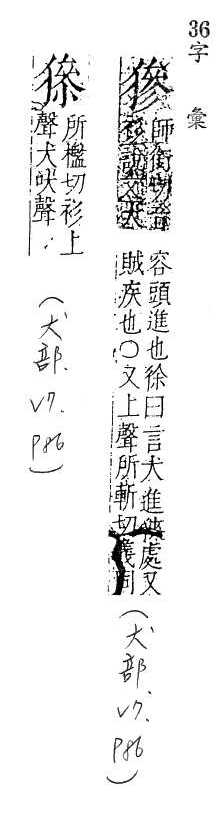 36字 彙
㺑
師銜切音
衫說文犬
容頭進也徐曰言犬進狹處又
賊疾也〇又上聲所斬切義同
(犬部、V7. P86)
所檻切衫上
聲犬吠聲
(犬部. V7. P86)